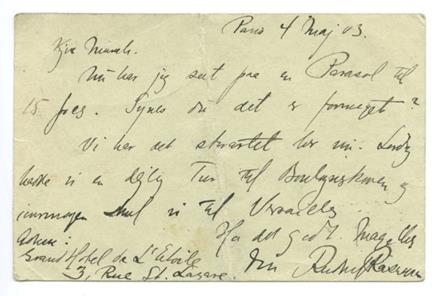 Paris 4 Maj 03.
Kjære Munch.
Nu har jeg set paa en Parasol til
15 frcs. Synes du det er formeget?
Vi har det storartet her nu. Lørdag
havde vi en dejlig Tur til Boulogneskoven og
imorgen skal vi til Versailles.
Ha det godt.
Adresse:
Grand Hotel de L'Etoile
3, Rue St. Lazare.
Din